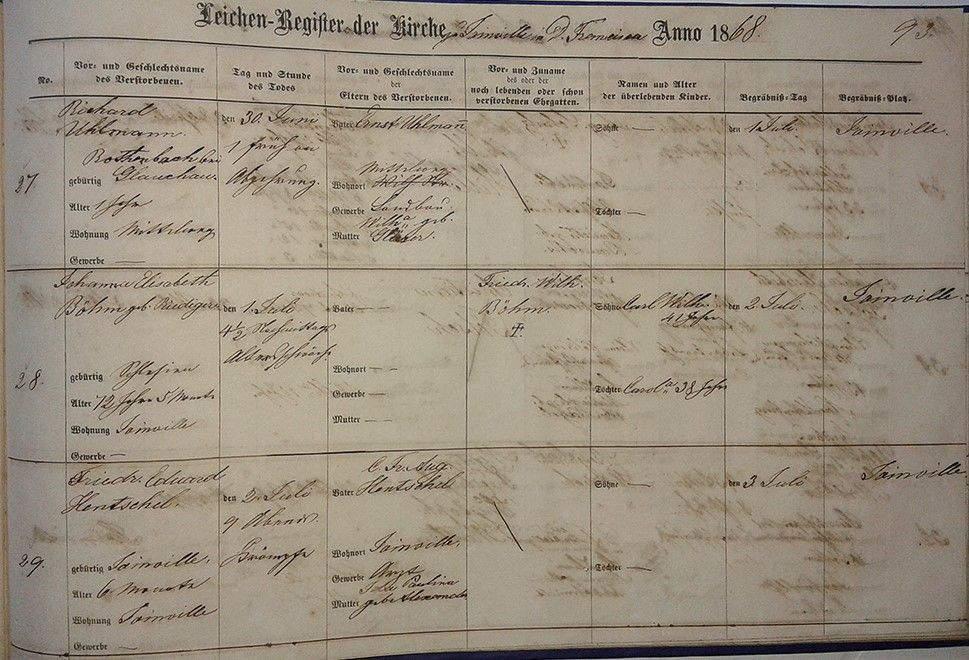 Leichen-Register der Kirche zu Joinville in D. Francisca Anno 1868.
93.
No.
Vor- und Geschlechtsname
des Verstorbenen.
Tag und Stunde
des Todes
Vor- und Geschlechtsname
der
Eltern des Verstorbenen.
Vor- und Zuname
des oder der
noch lebenden oder schon
verstorbenen Ehegatten.
Namen und Alter
der überlebenden Kinder.
Begräbniß-Tag
Begräbniß-Platz.
27
Richard
Uhlmann.
Rothenbach bei
gebürtig Glauchau.
Alter 1 Jahr
Wohnung Mittelweg
Gewerbe —
den 30. Juni
1 früh an
Abzehrung.
Vater Ernst Uhlmann
Mittelweg
Wohnort
Gewerbe Landbau
Wilh.a geb.
Mutter Gläser.
Söhne —
Töchter —
den 1. Juli.
Joinville.
28.
Johanna Elisabeth
Böhm geb. Rüdiger
gebürtig Schlesien
Alter 72 Jahre 5 Monate
Wohnung Joinville
Gewerbe —
den 1. Juli
4 1/2 Nachmittags
Altersschwäche
Vater —
Wohnort —
Gewerbe —
Mutter —
Friedr. Wilh.
Böhm.
†.
Söhne Carl Wilh.
41 Jahre
Töchter Carol.a 38 Jahre
den 2 Juli.
Joinville.
29.
Friedr. Eduard
Hentschel.
gebürtig Joinville.
Alter 6 Monate
Wohnung Joinville
Gewerbe —
den 2. Juli
9 Abends.
Krämpfe
C. Fr. Aug.
Vater Hentschel
Wohnort Joinville.
Gewerbe Arzt
Paulina
Mutter geb. Alexander
Söhne —
Töchter —
den 3 Juli
Joinville